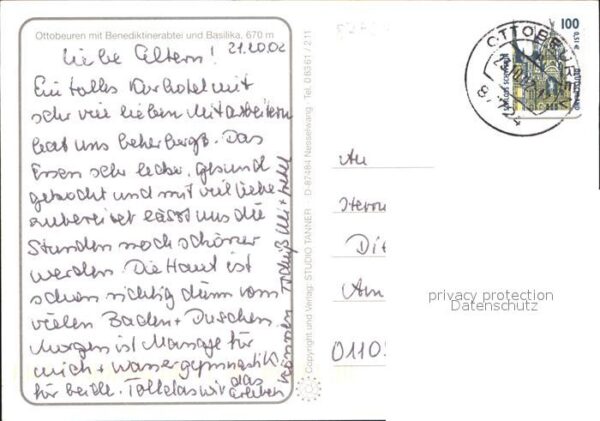 Ottobeuren mit Benediktinerabtei und Basilika, 670 m
Liebe Eltern! 21.10.02
Ein tolles Kurhotel mit
sehr viel lieben Mitarbeitern
hat uns beherbergt. Das
Essen sehr lecker, gesund
gekocht und mit viel Liebe
zubereitet lässt uns die
Stunden noch schöner
werden. Die Haut ist
schon richtig dünn vom
vielen Baden + Duschen.
Morgen ist Massage für
mich + Wassergymnastik
für beide. Toll das wir das
erleben
können Tschüß
Copyright und Verlag: STUDIO TANNER D-87484 Nesselwang Tel. 0 83 61 / 2 11
OTTOBEUREN
87724
100
0,51 €
DEUTSCHLAND
An
Herrn
Di
Am
0110
privacy protection
Datenschutz